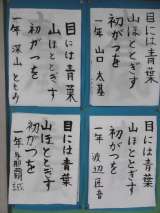 目には青葉
山ほととぎす
初がつを
一年 山口太基
目には青葉
山ほととぎす
初がつを
一年 深山とも
目には青葉
山ほととぎす
初がつを
一年 渡辺
目には青葉
山ほととぎす
初がつを
一年